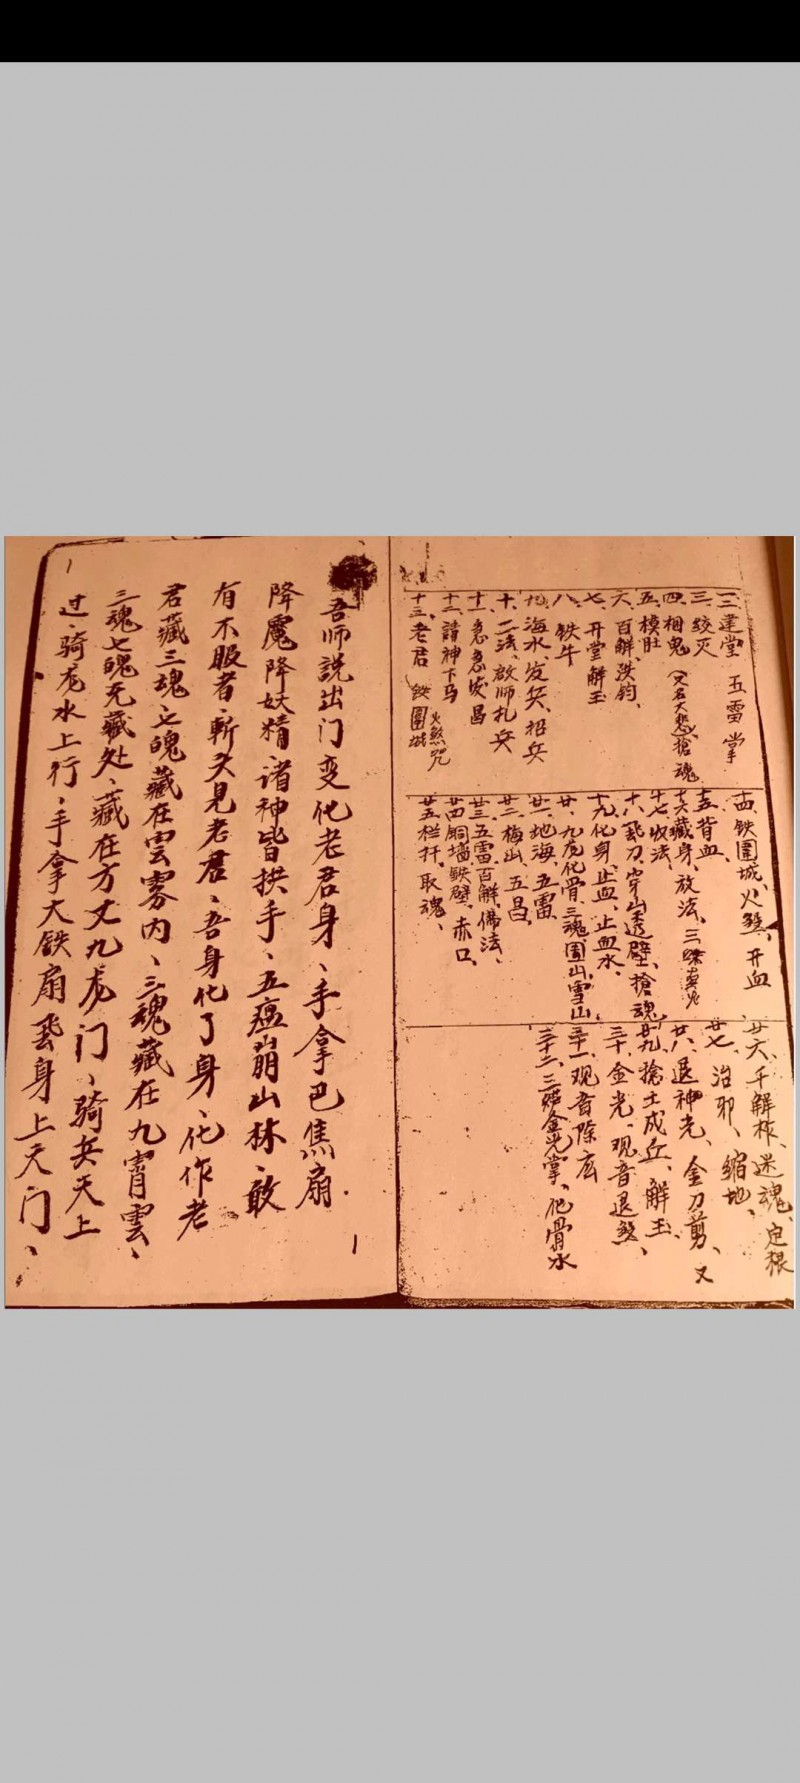 一二、建堂 五雷掌
三、绞灭
四、相鬼 (又名大悲)抢魂
五、模肚
六、百解、洪钧、
七、开堂解玉
八、铁牛
九、海水、发兵、招兵
十、二法、啟师扎兵
十一、急急发昌
十二、請神下马
十三、老君 鉄圍城 火煞咒
十四、铁圍城、火煞、开血
十五、背血、
十六、藏身、放法、三
十七、收法、
十八、飛刀、穿山透壁、搶魂
十九、化身、止血、止血水、
廿、九龙化骨、三魂围山、雪山
廿一、地海、五雷
廿二、梅山、五昌、
廿三、五雷百解、佛法、
廿四、銅墙鉄壁、赤口、
廿五、栏扦、取魂、
廿六、千解、迷魂、定根
廿七、治邪、缩地、
廿八、退神光、金刀剪、又
廿九、搶土成丘、解玉、
三十、金光、观音退煞、
三十一、观音除
三十二、三 金光掌、化骨水
吾师説出门变化老君身、手拿巴焦扇
降魔降妖精、诸神皆拱手、五瘟崩山林、敢
有不服者、斬头見老君、吾身化了身、化作老
君藏三魂、七魄藏在雲雾内、三魂藏在九霄雲、
三魂七魄无藏处、藏在方丈九龙门、骑兵天上
过、骑龙水上行、手拿大铁扇飛身上天门、
1
1